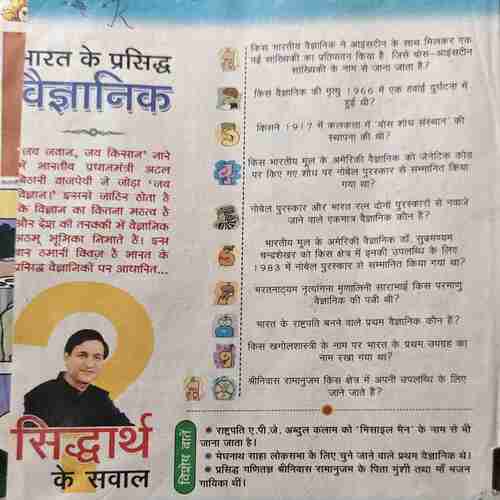 भारत के प्रसिद्ध
वैज्ञानिक
'जय जवान, जय किसान' नारे
में भारतीय प्रधानमंत्री अटल
बिहारी वाजपेयी ने जोड़ा 'जय
विज्ञान।' इससे जाहिर होता है
के विज्ञान का कितना महत्व है
और देश की तरक्की में वैज्ञानिक
अहम् भूमिका निभाते हैं। इस
बार हमारी क्विज़ है भारत के
प्रसिद्ध वैज्ञानिकों पर आधारित...
सिद्धार्थ
के सवाल
किस भारतीय वैज्ञानिक ने आइंस्टीन के साथ मिलकर एक
नई सांख्यिकी का प्रतिपादन किया है जिसे बोस-आइंस्टीन
सांख्यिकी के नाम से जाना जाता है?
किस वैज्ञानिक की मृत्यु 1966 में एक हवाई दुर्घटना में
हुई थी?
किसने 1917 में कलकत्ता में 'बोस शोध संस्थान' की
स्थापना की थी?
किस भारतीय मूल के अमेरिकी वैज्ञानिक को जेनेटिक कोड
पर किए गए शोध पर नोबेल पुरस्कार से सम्मानित किया
गया था?
नोबेल पुरस्कार और भारत रत्न दोनों पुरस्कारों से नवाजे
जाने वाले एकमात्र वैज्ञानिक कौन है?
भारतीय मूल के अमेरिकी वैज्ञानिक डॉ. सुब्रमण्यम
चन्द्रशेखर को किस क्षेत्र में इनकी उपलब्धि के लिए
1983 में नोबेल पुरस्कार से सम्मानित किया गया था?
भरतनाट्यम नृत्यांगना मृणालिनी साराभाई किस परमाणु
वैज्ञानिक की पत्नी थी?
भारत के राष्ट्रपति बनने वाले प्रथम वैज्ञानिक कौन हैं?
किस खगोलशास्त्री के नाम पर भारत के प्रथम उपग्रह का
नाम रखा गया था?
श्रीनिवास रामानुजम किस क्षेत्र में अपनी उपलब्धि के लिए
जाने जाते है?
विशेष बातें
● राष्ट्रपति ए.पी.जे. अब्दुल कलाम को 'मिसाइल मैन' के नाम से भी
जाना जाता है।
● मेघनाथ साहा लोकसभा के लिए चुने जाने वाले प्रथम वैज्ञानिक थे।
● प्रसिद्ध गणितज्ञ श्रीनिवास रामानुजम के पिता मुंशी तथा माँ भजन
गायिका थीं।